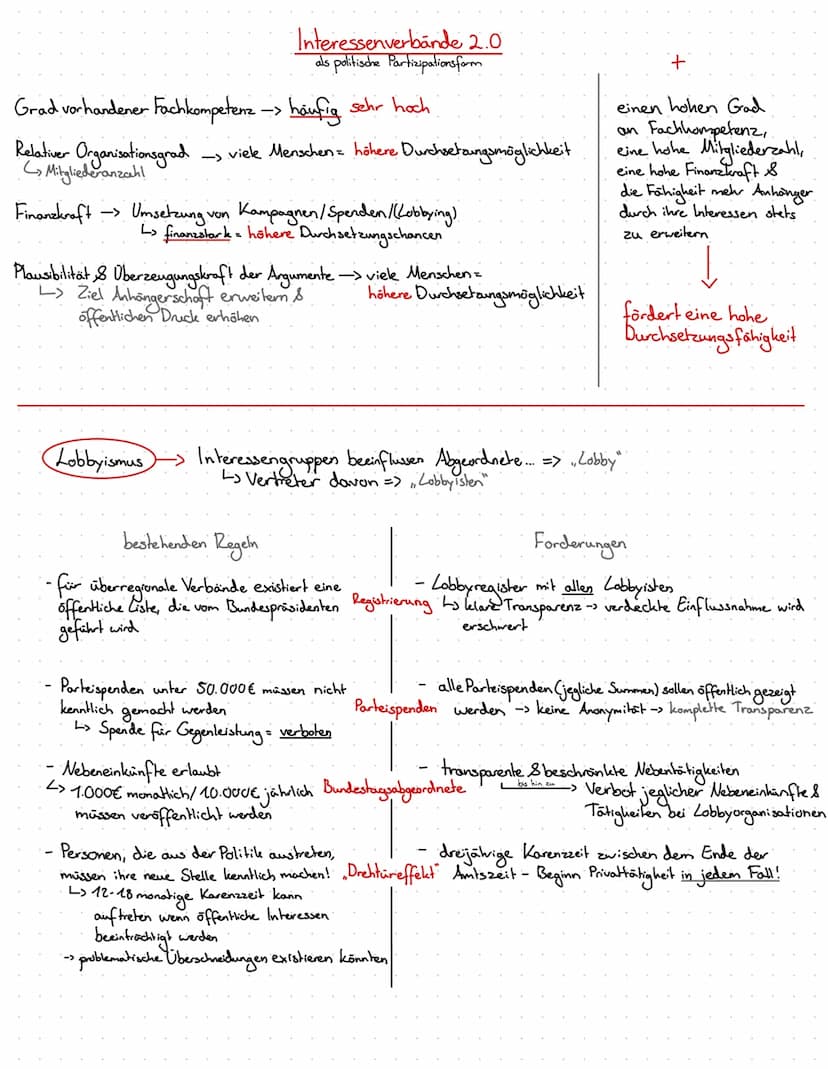 Interessenverbände 2.0
als politische Partizipationsform
Grad vorhandener Fachkompetenz –> häufig sehr hoch
Relativer Organisationsgrad –> viele Menschen = höhere Durchsetzungsmöglichkeit
↳ Mitgliederanzahl
Finanzkraft –> Umsetzung von Kampagnen/Spenden/(Lobbying)
↳ finanzstark = höhere Durchsetzungschancen
Plausibilität & Überzeugungskraft der Argumente –> viele Menschen =
↳ Ziel Anhängerschaft erweitern & höhere Durchsetzungsmöglichkeit
öffentlichen Druck erhöhen
+
einen hohen Grad
an Fachkompetenz,
eine hohe Mitgliederzahl,
eine hohe Finanzkraft &
die Fähigkeit mehr Anhänger
durch ihre Interessen stets
zu erweitern
fördert eine hohe
Durchsetzungsfähigkeit
Lobbyismus –> Interessengruppen beeinflussen Abgeordnete... => „Lobby"
↳ Vertreter davon => „Lobbyisten"
bestehenden Regeln
- für überregionale Verbände existiert eine
öffentliche Liste, die vom Bundespräsidenten
geführt wird
Registrierung
Forderungen
- Lobbyregister mit allen Lobbyisten
↳ klare Transparenz –> verdeckte Einflussnahme wird
erschwert
- Parteispenden unter 50.000€ müssen nicht
kenntlich gemacht werden
↳ Spende für Gegenleistung = verboten
Parteispenden
- alle Parteispenden (jegliche Summen) sollen öffentlich gezeigt
werden –> keine Anonymität –> komplette Transparenz
- Nebeneinkünfte erlaubt
↳ 1.000€ monatlich/ 10.000€ jährlich
müssen veröffentlicht werden
Bundestagsabgeordnete
- transparente & beschränkte Nebentätigkeiten
bis hin zu –> Verbot jeglicher Nebeneinkünfte &
Tätigkeiten bei Lobbyorganisationen
- Personen, die aus der Politik austreten,
müssen ihre neue Stelle kenntlich machen!
↳ 12-18 monatige Karenzzeit kann
auftreten wenn öffentliche Interessen
beeinträchtigt werden
–> problematische Überschneidungen existieren könnten
„Drehtüreffekt"
- dreijährige Karenzzeit zwischen dem Ende der
Amtszeit – Beginn Privattätigkeit in jedem Fall!